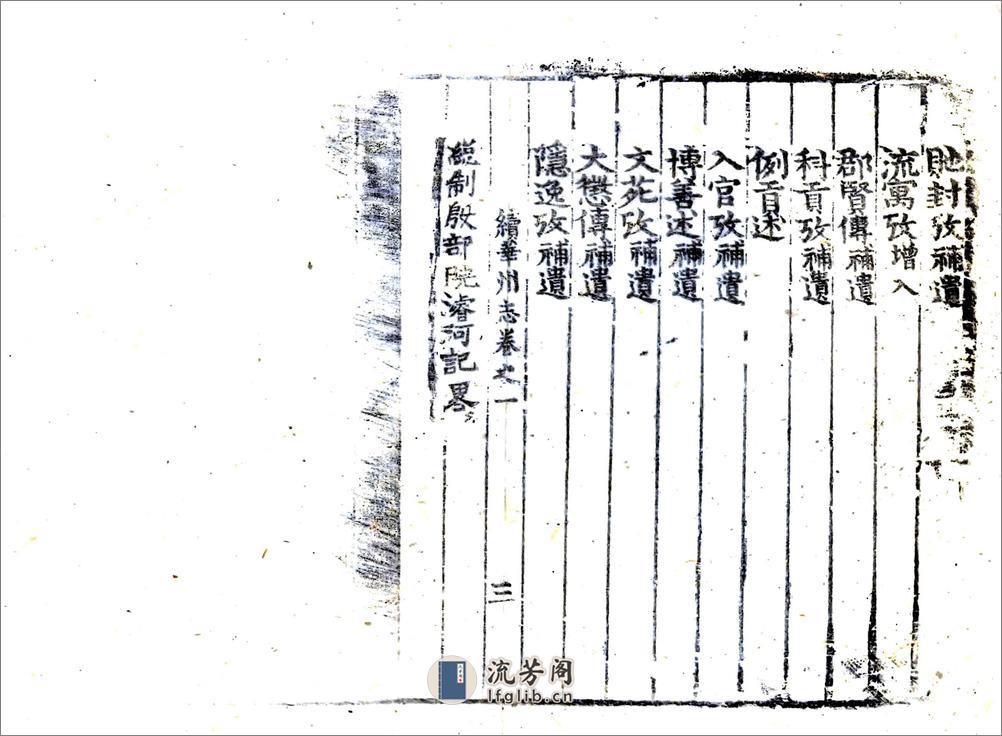 貤封攷補遺
流寓攷增入
郡賢傳補遺
科貢攷補遺
例貢述
入官攷補遺
博善述補遺
文苑攷補遺
大懲傳補遺
隱逸攷補遺
續華州志卷之一
三
總制殷部院濬河記畧
流芳阁
lfglib.cn